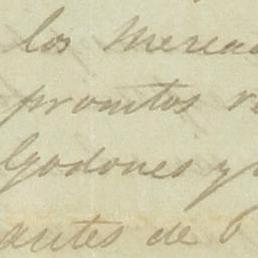 los Mercad
prontos v
lgodones y
antes de